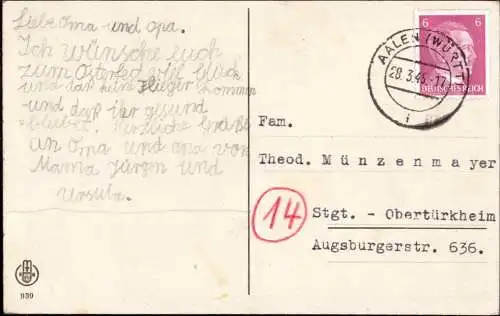 Liebe Oma und opa.
Ich wünsche euch
zum Osterfest viel Glück
und das keine Flieger kommen
und daß ihr gesund
bleibet. Herzliche Grüße
an Oma und opa von
Mama Jürgen und
Ursula.
6 6
DEUTSCHES REICH
AALEN (WÜRTT)
28.3.43.-17
Fam.
Theod. Münzenmayer
14
Stgt. - Obertürkheim
Augsburgerstr. 636.
939